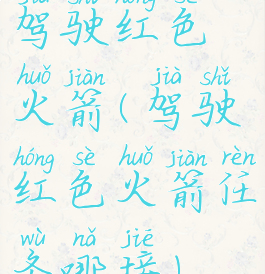 jià shǐ hóng sè
驾驶红色
huǒ jiàn jià shǐ
火箭(驾驶
hóng sè huǒ jiàn rèn
红色火箭任
wù nǎ jiē
务哪接)